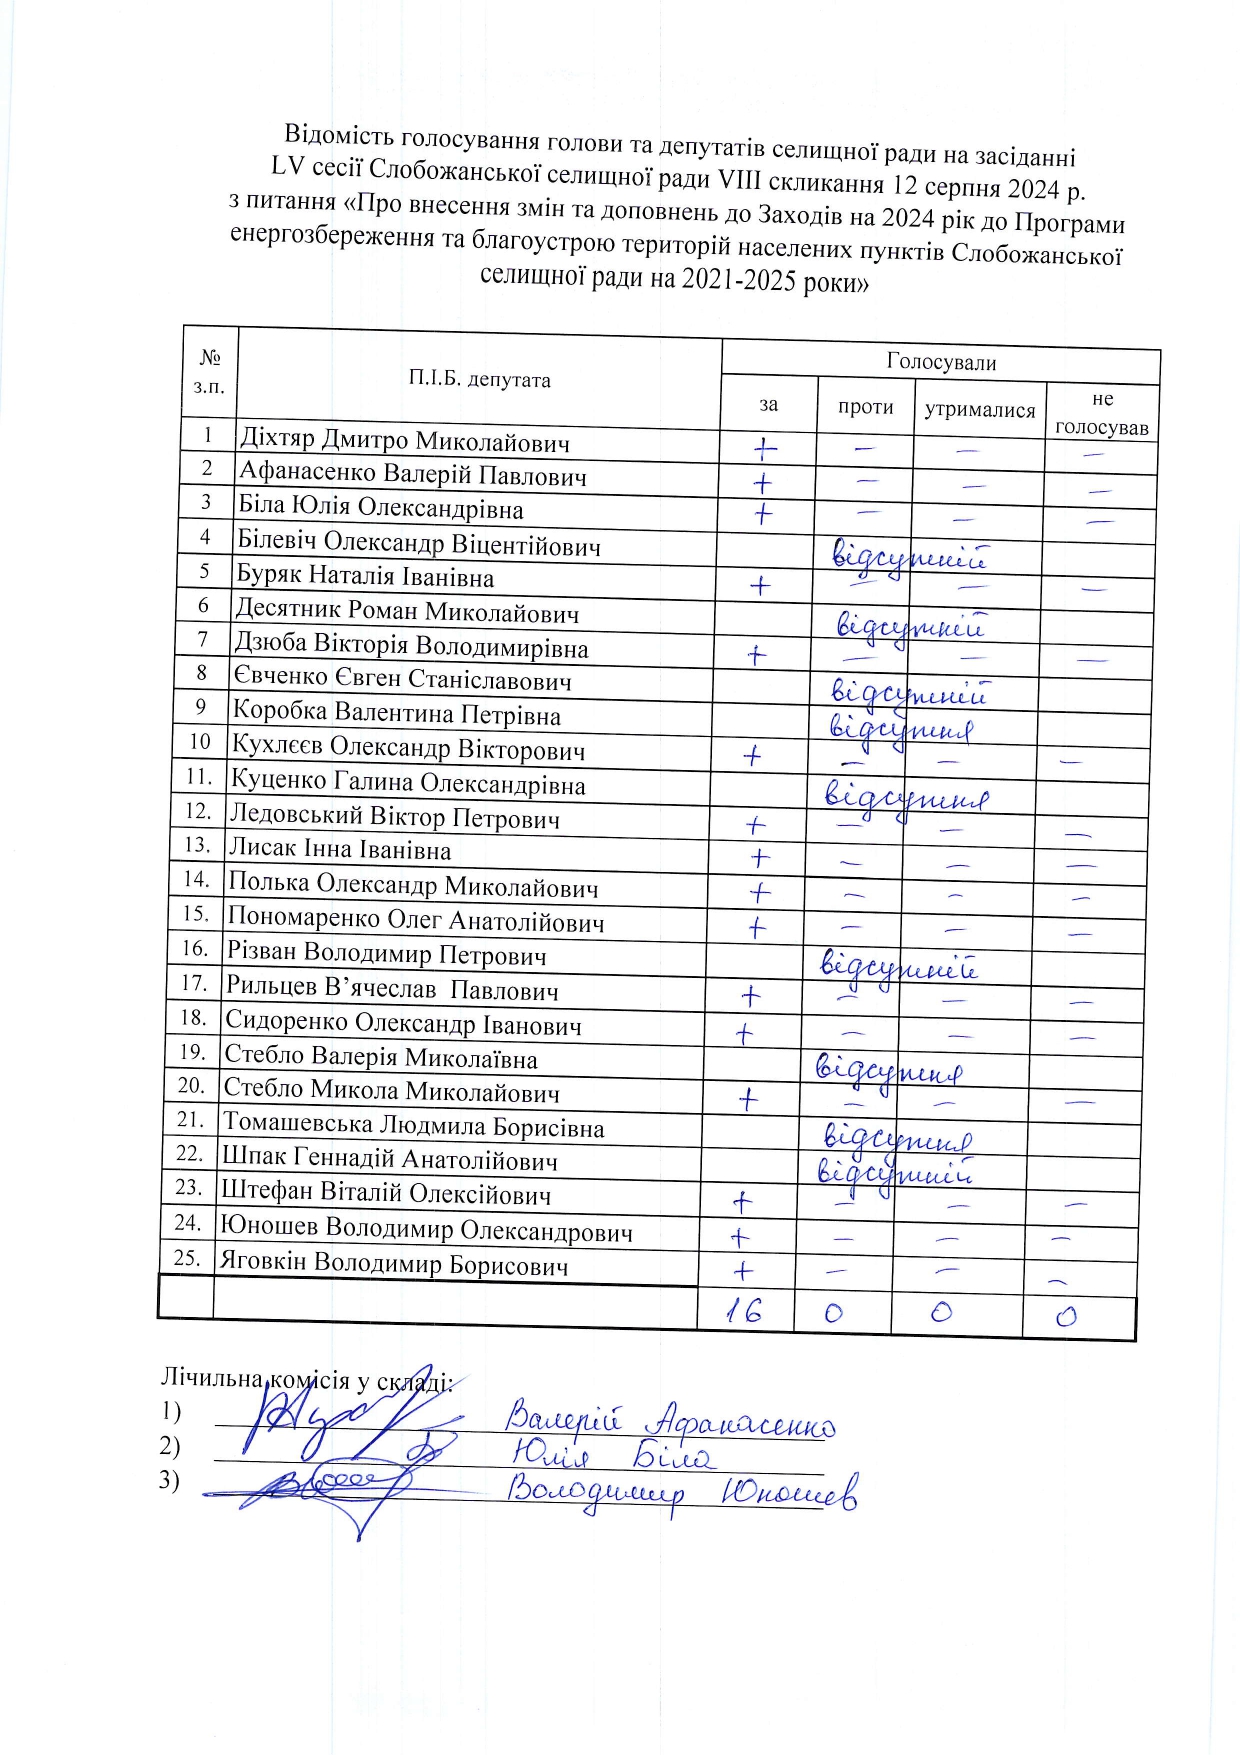 Відомість голосування голови та депутатів селищної ради на засіданні
LV сесії Слобожанської селищної ради VIII скликання 12 серпня 2024 р.
з питання «Про внесення змін та доповнень до Заходів на 2024 рік до Програми
енергозбереження та благоустрою територій населених пунктів Слобожанської
селищної ради на 2021-2025 роки»
№ з.п. П.І.Б. депутата Голосували
за проти утрималися не голосував
1 Діхтяр Дмитро Миколайович + – – –
2 Афанасенко Валерій Павлович + – – –
3 Біла Юлія Олександрівна + – – –
4 Білевіч Олександр Віцентійович відсутній
5 Буряк Наталія Іванівна + – – –
6 Десятник Роман Миколайович відсутній
7 Дзюба Вікторія Володимирівна + – – –
8 Євченко Євген Станіславович відсутній
9 Коробка Валентина Петрівна відсутня
10 Кухлєєв Олександр Вікторович + – – –
11. Куценко Галина Олександрівна відсутня
12. Ледовський Віктор Петрович + – – –
13. Лисак Інна Іванівна + – – –
14. Полька Олександр Миколайович + – – –
15. Пономаренко Олег Анатолійович + – – –
16. Різван Володимир Петрович відсутній
17. Рильцев В’ячеслав Павлович + – – –
18. Сидоренко Олександр Іванович + – – –
19. Стебло Валерія Миколаївна відсутня
20. Стебло Микола Миколайович + – – –
21. Томашевська Людмила Борисівна відсутня
22. Шпак Геннадій Анатолійович відсутній
23. Штефан Віталій Олексійович + – – –
24. Юношев Володимир Олександрович + – – –
25. Яговкін Володимир Борисович + – – –
16 0 0 0
Лічильна комісія у складі:
1) Валерій Афанасенко
2) Юлія Біла
3) Володимир Юношев